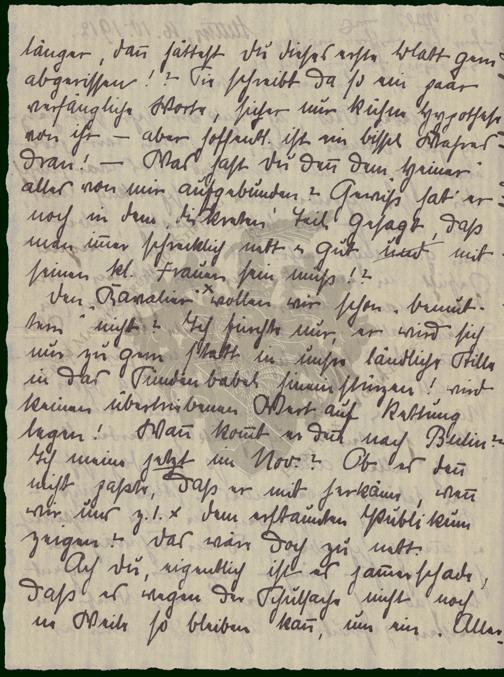 länger, dan̄ hättest du dieses erste Blatt gern
abgerissen!? Sie schreibt da so ein paar
verfängliche Worte, sicher nur kühne Hypothese
von ihr – aber hoffentl. ist ein bissel Wahres
dran! – Was hast du den̄ dem „Heiner"
alles von mir aufgebunden? Gewiss hat er
noch in dem „diskreten" Teil gesagt, daß
man im̄er schrecklich nett u gut und mit
seinen kl. Frauen sein muß!?
Den „Kavalier" x wollen wir schon „bemut-
tern" nicht? Ich fürchte nur, er wird sich
nur zu gern statt in unsre ländliche Stille
in das Sündenbabel hineinstürzen! wird
keinen übertriebenen Wert auf Rettung
legen! Wan̄ kom̄t er den̄ nach Berlin?
Ich meine jetzt im Nov.? Ob es den̄
nicht paßte, daß er mit herkäme, wen̄
wir uns z. 1. x dem erstaunten Publikum
zeigen? das wäre doch zu nett.
Ach du, eigentlich ist es jam̄erschade,
daß es wegen der Schulsache nicht noch
ne Weile so bleiben kan̄, um ein. Aller-